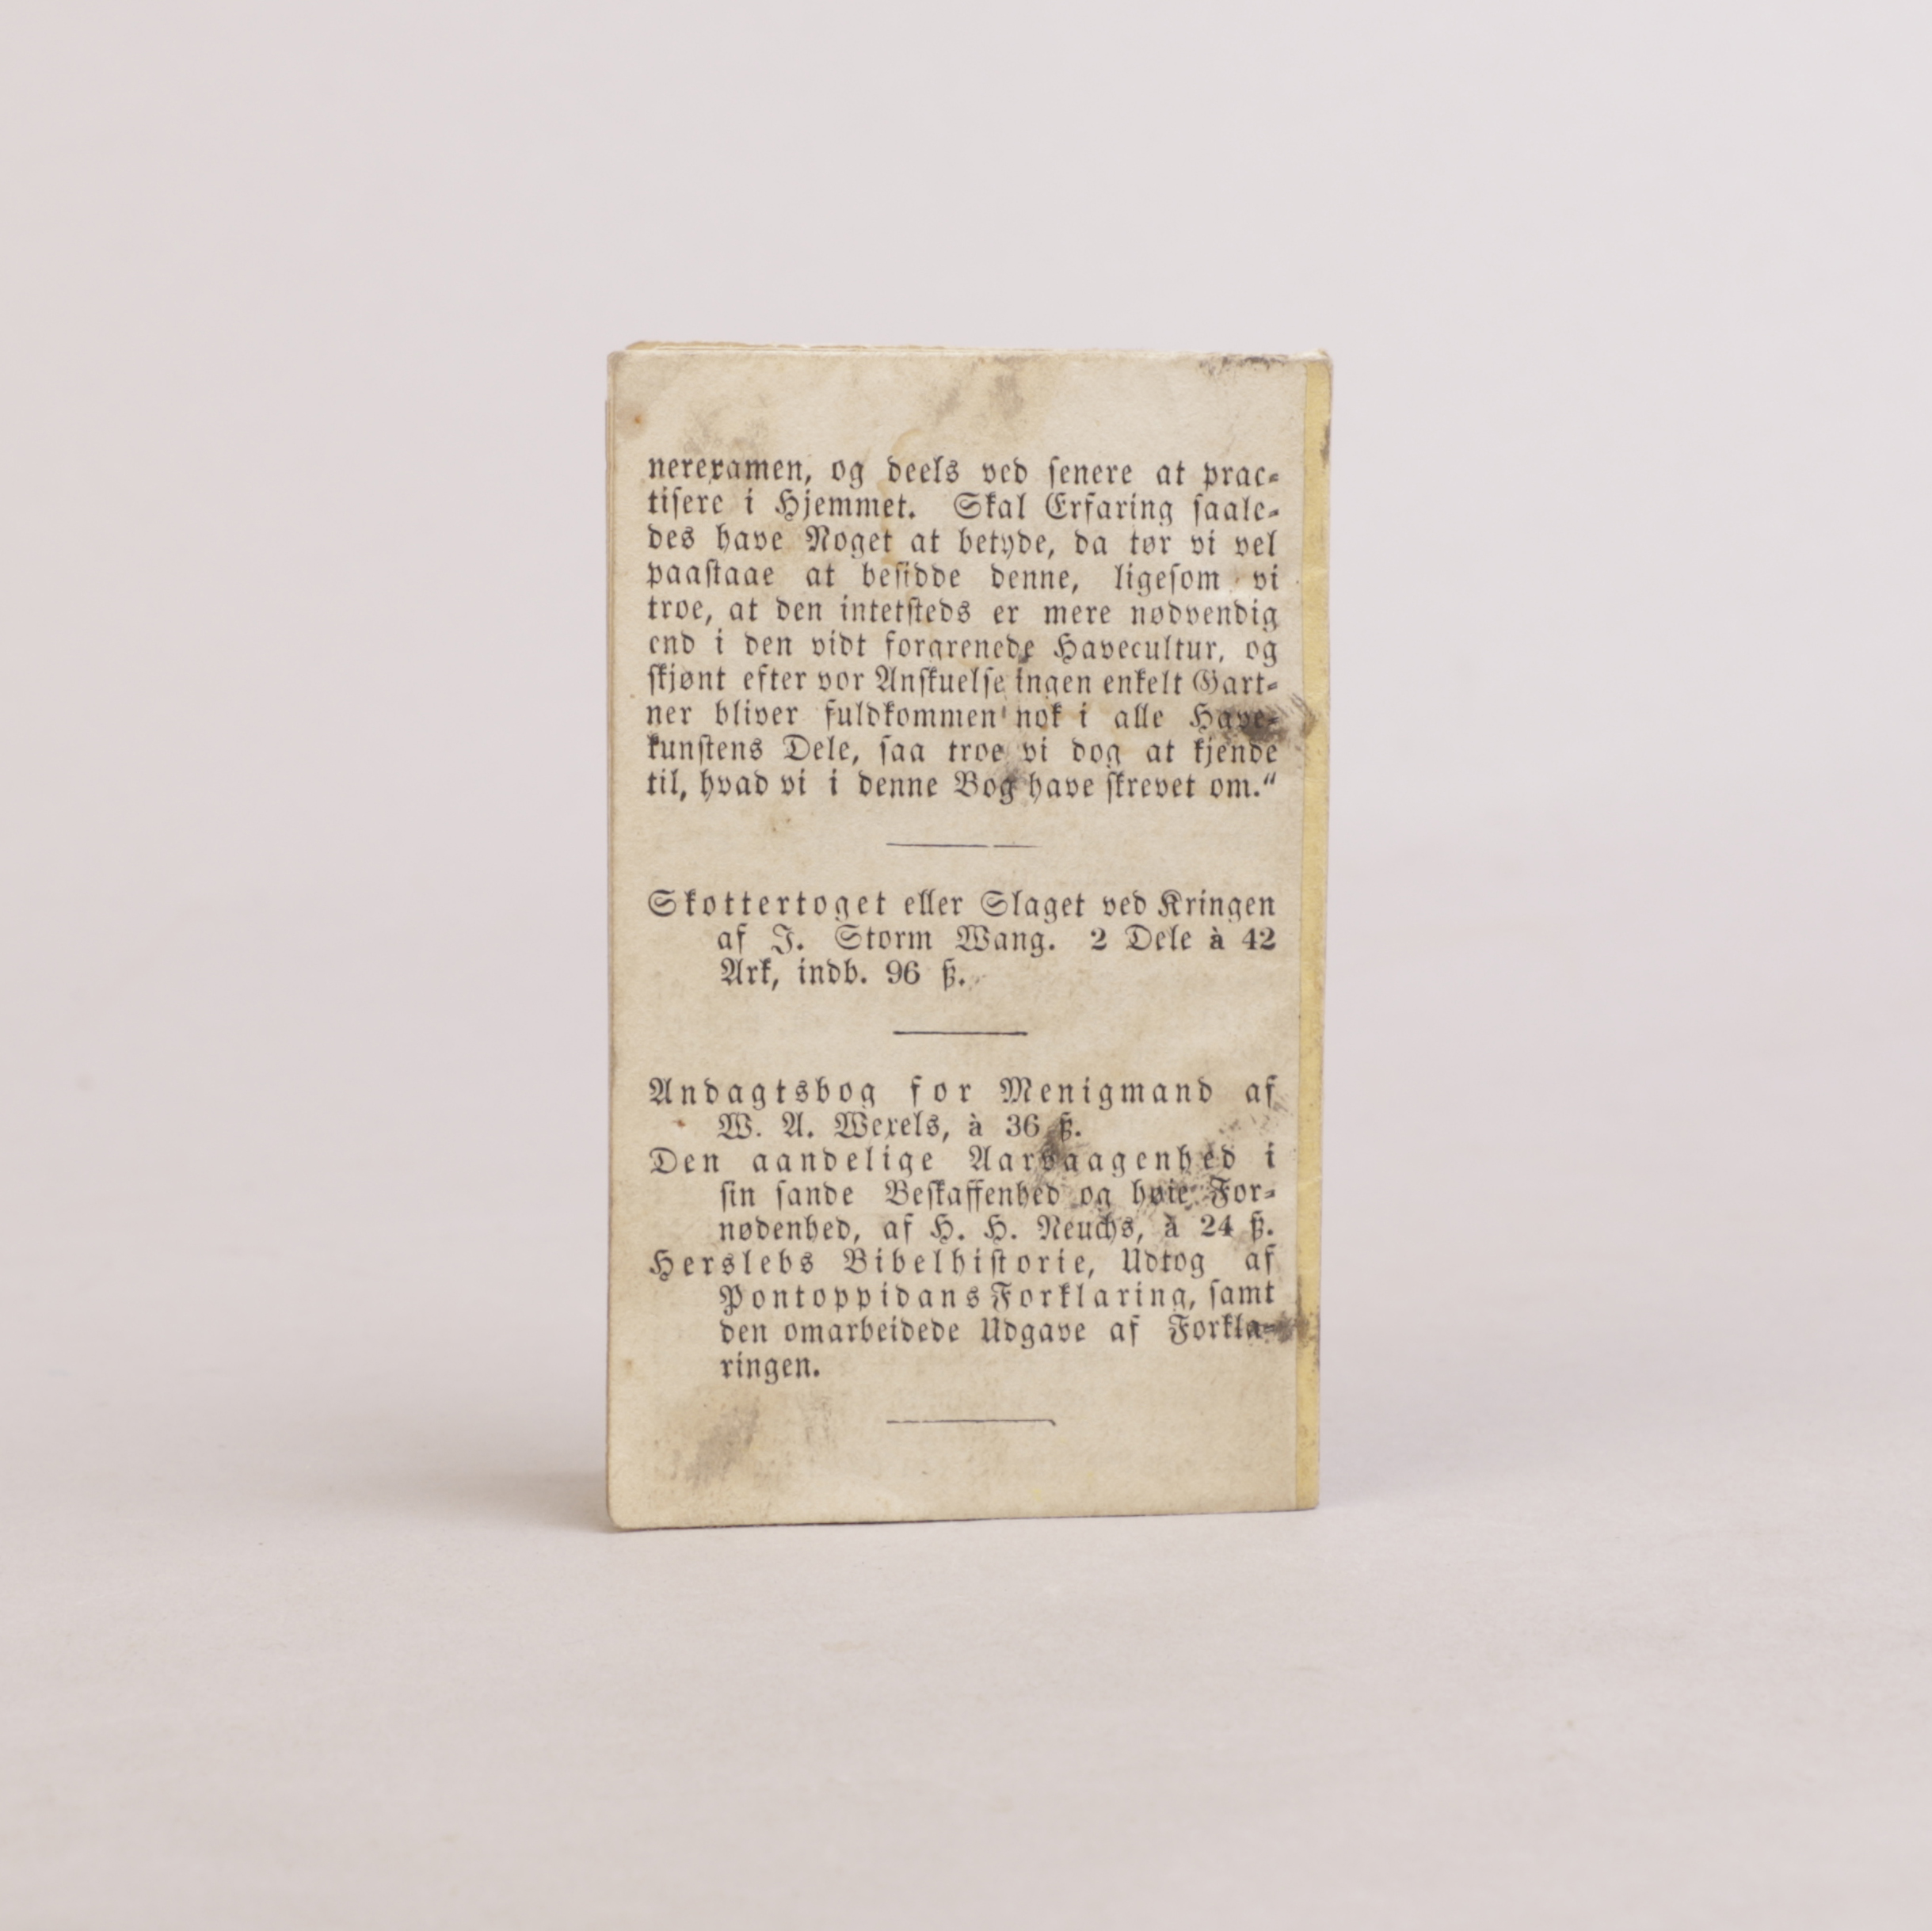 nerexamen, og deels ved senere at prac-
tisere i Hjemmet. Skal Erfaring saale-
des have Noget at betyde, da tør vi vel
paastaae at besidde denne, ligesom vi
troe, at den intetsteds er mere nødvendig
end i den vidt forgrenede Havecultur, og
skjønt efter vor Anskuelse ingen enkelt Gart-
ner bliver fuldkommen nok i alle Have-
kunstens Dele, saa troe vi dog at kjende
til, hvad vi i denne Bog have skrevet om.“
Skottertoget eller Slaget ved Kringen
af J. Storm Wang. 2 Dele à 42
Ark, indb. 96 ß.
Andagtsbog for Menigmand af
W. A. Wexels, à 36 ß.
Den aandelige Aarvaagenhed i
sin sande Beskaffenhed og høie For-
nødenhed, af H. H. Neuchs, à 24 ß.
Herslebs Bibelhistorie, Udtog af
Pontoppidans Forklaring, samt
den omarbeidede Udgave af Forkla-
ringen.